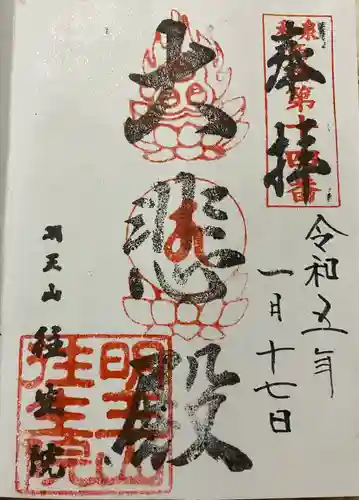 奉拝
第十四番
令和五年
一月十七日
大悲殿
明王山
往生院
明王山往生院